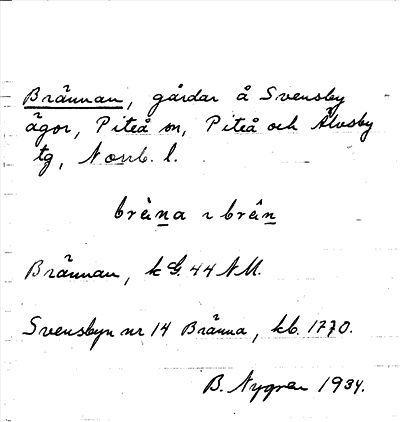 Brännan, gårdar å Svensby
ägor, Piteå sn, Piteå och Älvsby
tg, Norrb. l.
brèna ~ brên
Brännan, k G. 44 NU.
Svensbyn nr 14 Bränna, kb. 1770.
B. Nygren 1934.